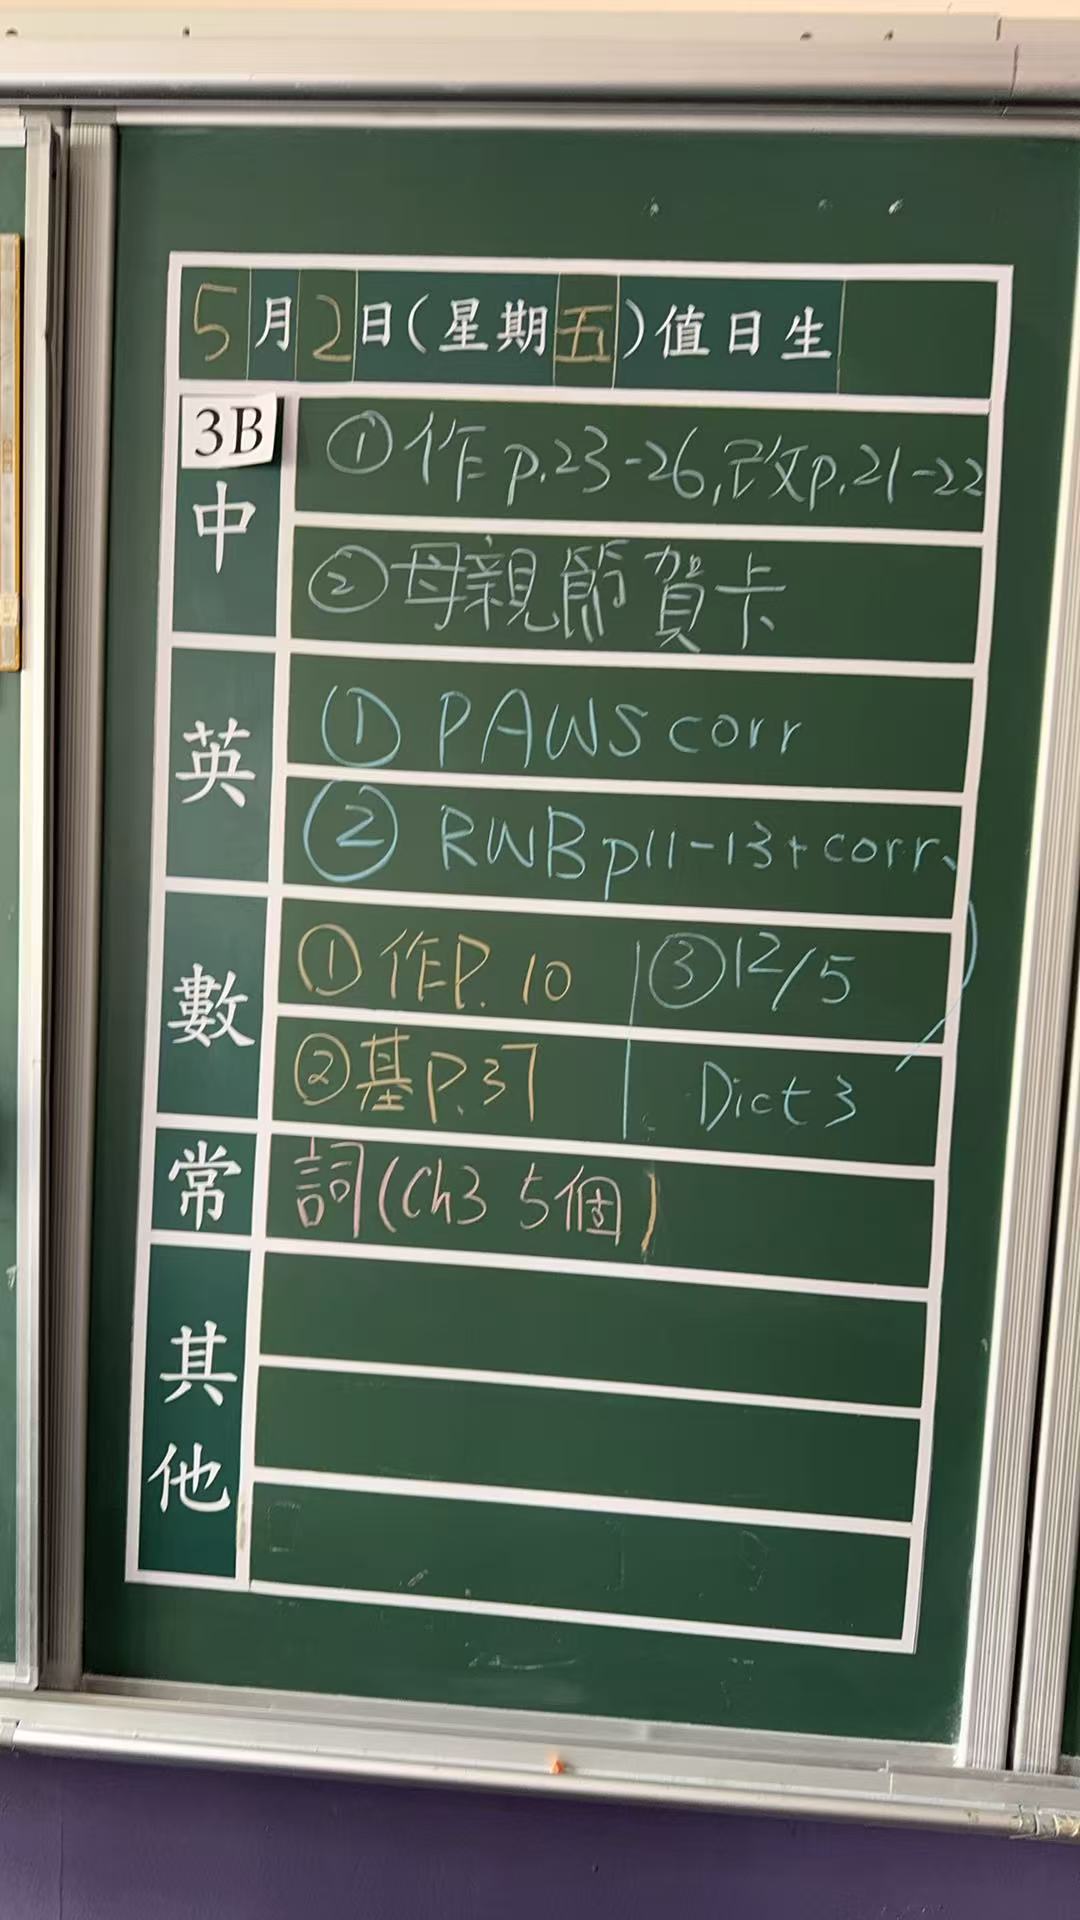 5月2日(星期五)值日生
3B
中
①作p.23-26,改p.21-22
②母親節賀卡
英
① PAWS corr
② RWB p11-13+corr.
數
①作P.10
②基P.37
③12/5
Dict 3
常
詞(Ch3 5個)
其他